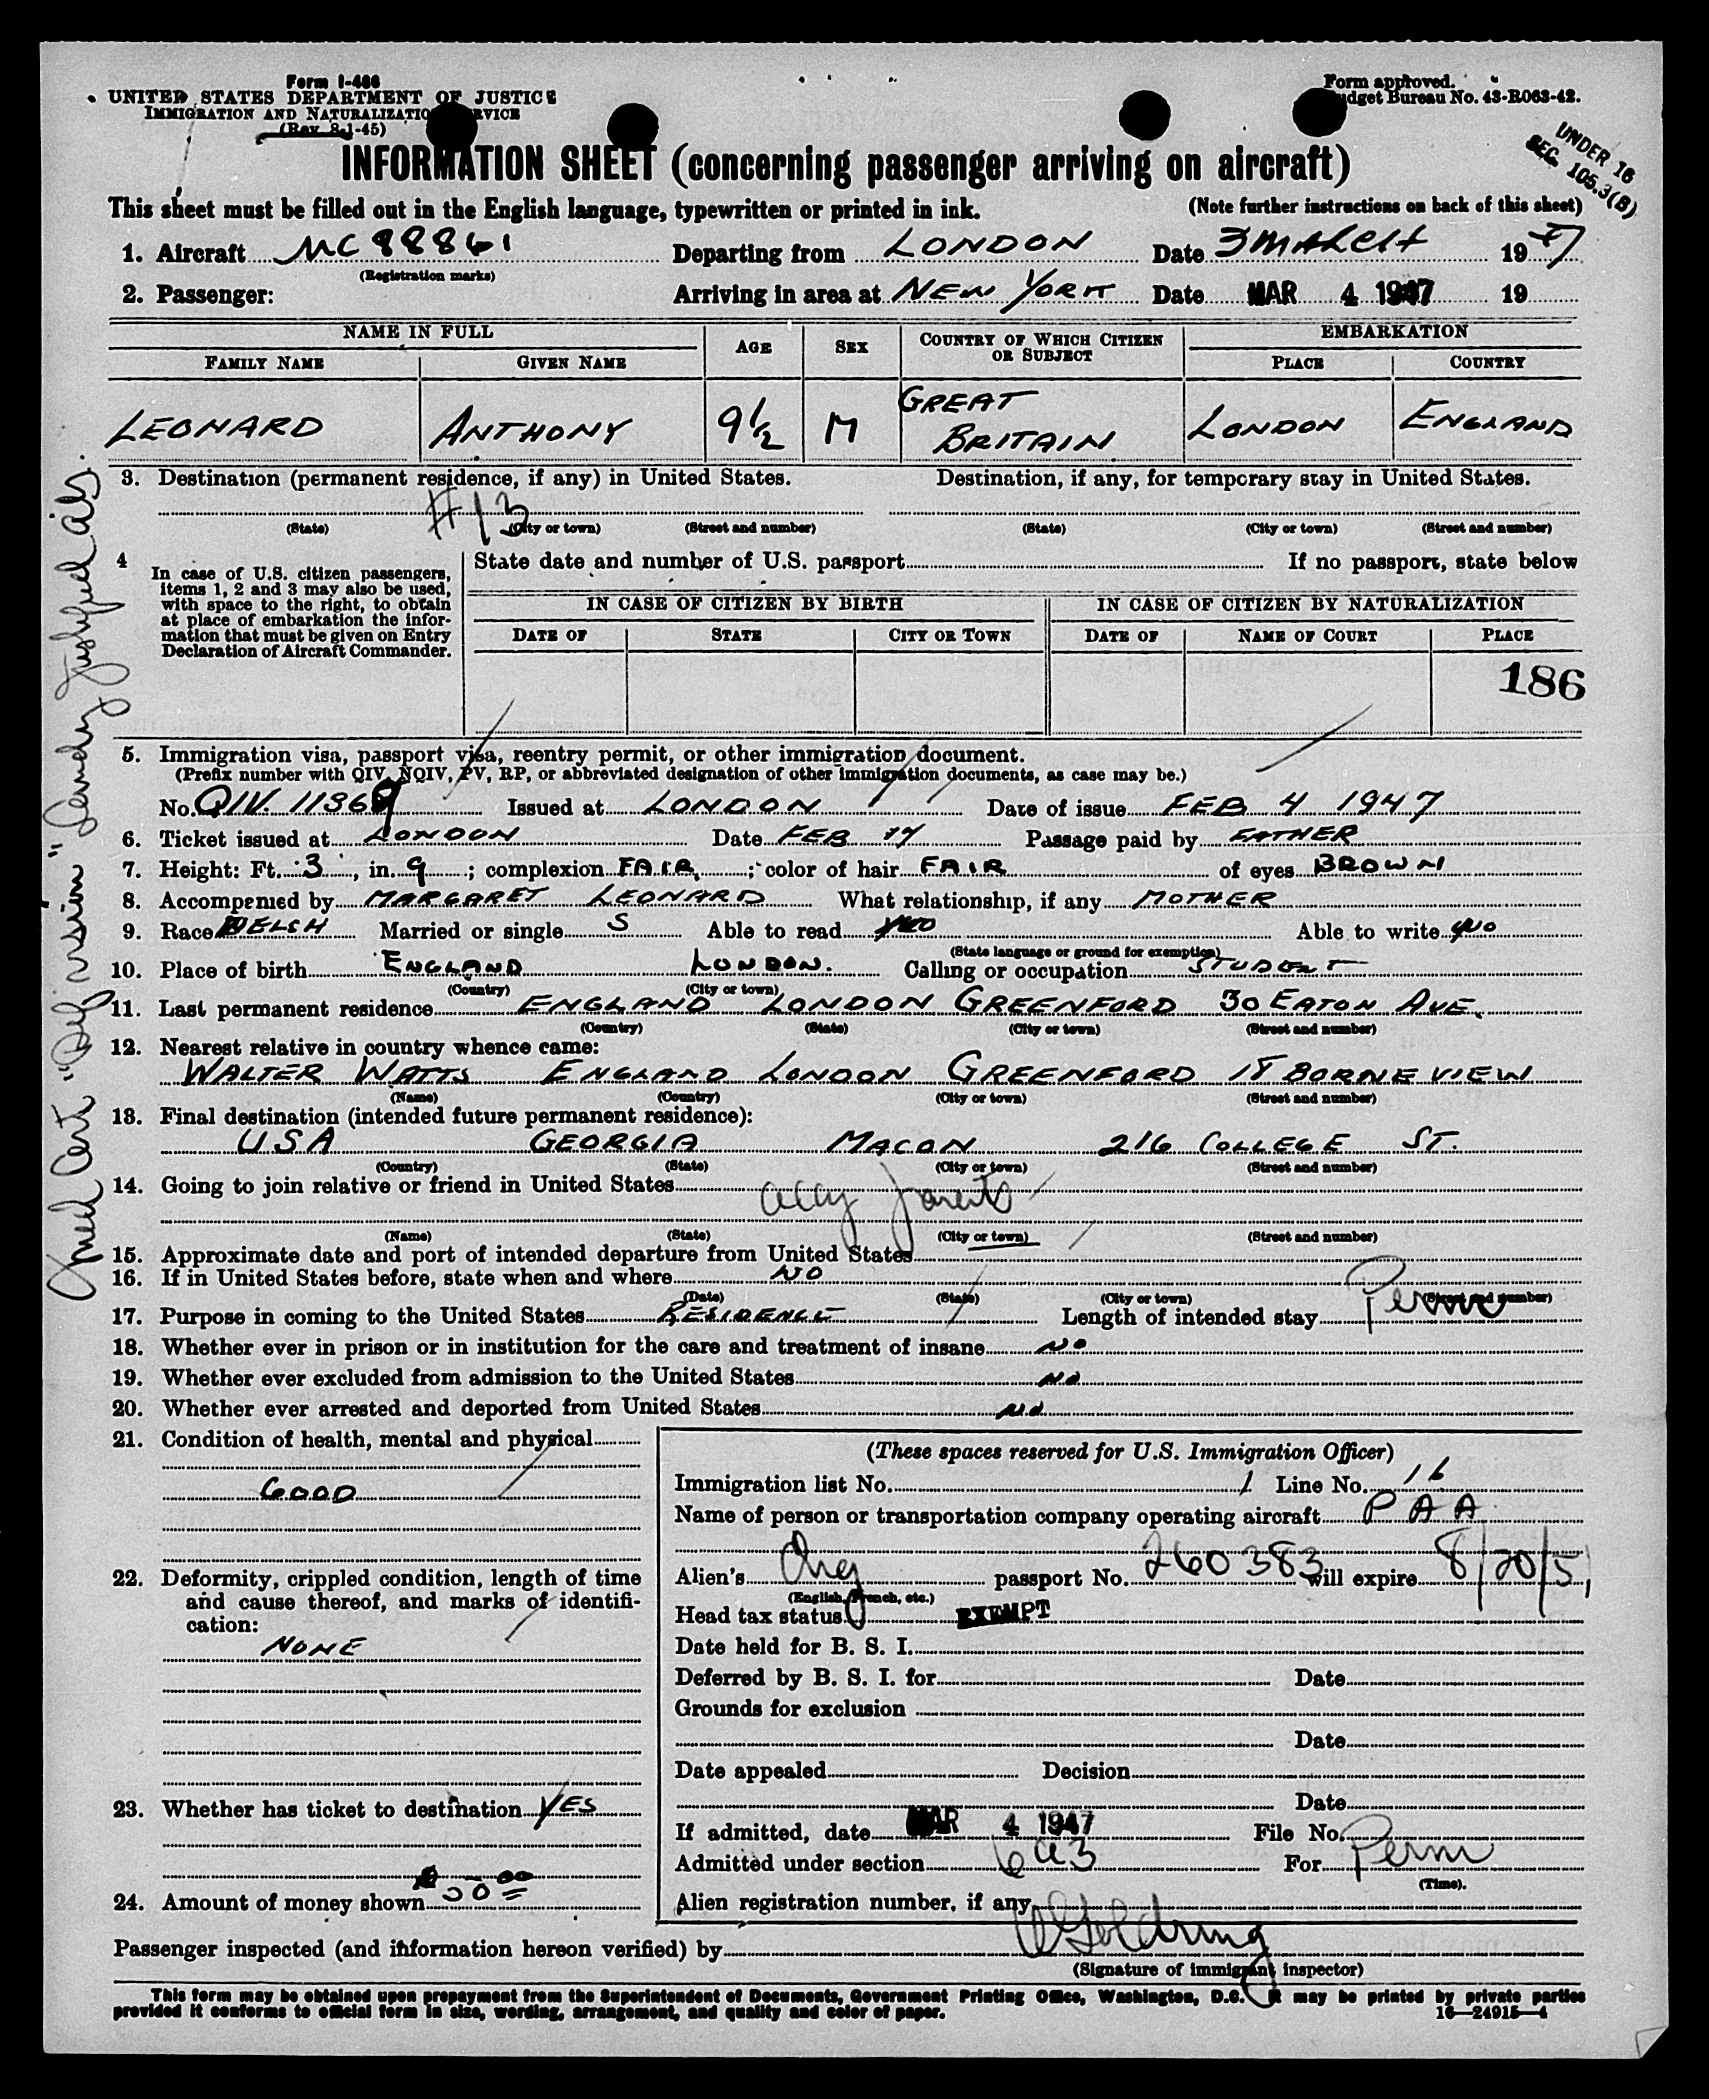 Form I-466
UNITED STATES DEPARTMENT OF JUSTICE
IMMIGRATION AND NATURALIZATION SERVICE
(Rev. 8-1-45)
Form approved.
Budget Bureau No. 43-R063-42.
UNDER 16
SEC. 105.3(B)
INFORMATION SHEET (concerning passenger arriving on aircraft)
This sheet must be filled out in the English language, typewritten or printed in ink. (Note further instructions on back of this sheet)
1. Aircraft NC 88861 Departing from LONDON Date 3 MARCH 1947
(Registration marks)
2. Passenger: Arriving in area at NEW YORK Date MAR 4 1947 19
NAME IN FULL AGE SEX COUNTRY OF WHICH CITIZEN OR SUBJECT EMBARKATION
FAMILY NAME GIVEN NAME PLACE COUNTRY
LEONARD ANTHONY 9½ M GREAT BRITAIN LONDON ENGLAND
3. Destination (permanent residence, if any) in United States. Destination, if any, for temporary stay in United States.
#13
(State) (City or town) (Street and number) (State) (City or town) (Street and number)
4 In case of U.S. citizen passengers, items 1, 2 and 3 may also be used, with space to the right, to obtain at place of embarkation the information that must be given on Entry Declaration of Aircraft Commander.
State date and number of U.S. passport If no passport, state below
IN CASE OF CITIZEN BY BIRTH IN CASE OF CITIZEN BY NATURALIZATION
DATE OF STATE CITY OR TOWN DATE OF NAME OF COURT PLACE
186
5. Immigration visa, passport visa, reentry permit, or other immigration document.
(Prefix number with QIV, NQIV, PV, RP, or abbreviated designation of other immigration documents, as case may be.)
No. QIV. 11369 Issued at LONDON Date of issue FEB 4 1947
6. Ticket issued at LONDON Date FEB 17 Passage paid by FATHER
7. Height: Ft. 3, in. 9; complexion FAIR; color of hair FAIR of eyes BROWN
8. Accompenied by MARGARET LEONARD What relationship, if any MOTHER
9. Race WELSH Married or single S Able to read NO Able to write NO
(State language or ground for exemption)
10. Place of birth ENGLAND LONDON. Calling or occupation STUDENT
(Country) (City or town)
11. Last permanent residence ENGLAND LONDON GREENFORD 30 EATON AVE.
(Country) (State) (City or town) (Street and number)
12. Nearest relative in country whence came:
WALTER WATTS ENGLAND LONDON GREENFORD 18 BORNE VIEW
(Name) (Country) (City or town) (Street and number)
13. Final destination (intended future permanent residence):
USA GEORGIA MACON 216 COLLEGE ST.
(Country) (State) (City or town) (Street and number)
14. Going to join relative or friend in United States
accy parents
(Name) (State) (City or town) (Street and number)
15. Approximate date and port of intended departure from United States
16. If in United States before, state when and where NO
(Date) (State) (City or town) (Street and number)
17. Purpose in coming to the United States RESIDENCE Length of intended stay Perm
18. Whether ever in prison or in institution for the care and treatment of insane NO
19. Whether ever excluded from admission to the United States NO
20. Whether ever arrested and deported from United States NO
21. Condition of health, mental and physical
GOOD
22. Deformity, crippled condition, length of time and cause thereof, and marks of identification:
NONE
23. Whether has ticket to destination YES
24. Amount of money shown 50 00
(These spaces reserved for U.S. Immigration Officer)
Immigration list No. 1 Line No. 16
Name of person or transportation company operating aircraft P A A
Alien's Eng passport No. 260383 will expire 8/20/51
(English, French, etc.)
Head tax status EXEMPT
Date held for B. S. I.
Deferred by B. S. I. for Date
Grounds for exclusion
Date
Date appealed Decision
Date
If admitted, date MAR 4 1947 File No.
Admitted under section 6a3 For Perm
(Time).
Alien registration number, if any
Passenger inspected (and information hereon verified) by Goldring
(Signature of immigrant inspector)
This form may be obtained upon prepayment from the Superintendent of Documents, Government Printing Office, Washington, D.C. It may be printed by private parties
provided it conforms to official form in size, wording, arrangement, and quality and color of paper. 16—24915-4
Med Cert